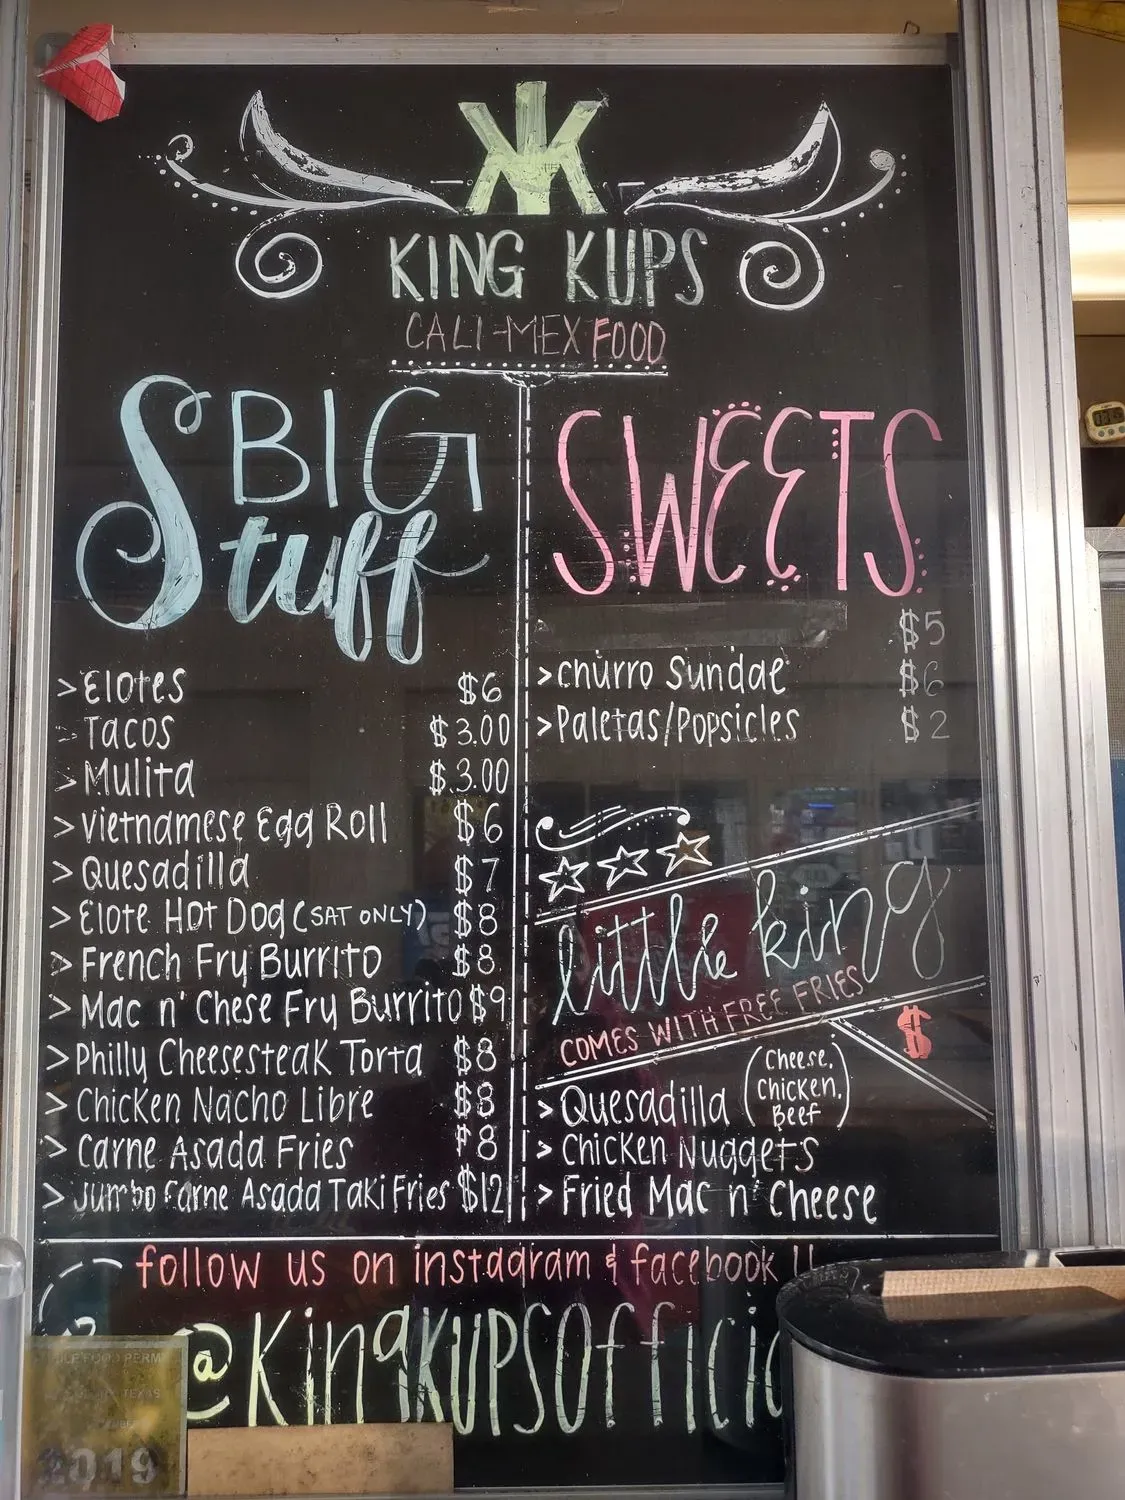 KING KUPS
CALI-MEX FOOD
BIG
Stuff
> Elotes $6
> Tacos $3.00
> Mulita $3.00
> Vietnamese Egg Roll $6
> Quesadilla $7
> Elote Hot Dog (SAT ONLY) $8
> French Fry Burrito $8
> Mac n' Chese Fry Burrito $9
> Philly Cheesesteak Torta $8
> Chicken Nacho Libre $8
> Carne Asada Fries $8
> Jumbo Carne Asada Taki Fries $12
SWEETS
$5
> Churro Sundae $6
> Paletas/Popsicles $2
little king
COMES WITH FREE FRIES
$
> Quesadilla (Cheese, Chicken, Beef)
> Chicken Nuggets
> Fried Mac n' Cheese
follow us on instagram & facebook
@KingKupsOffici
FOOD PERM
TEXAS
2019